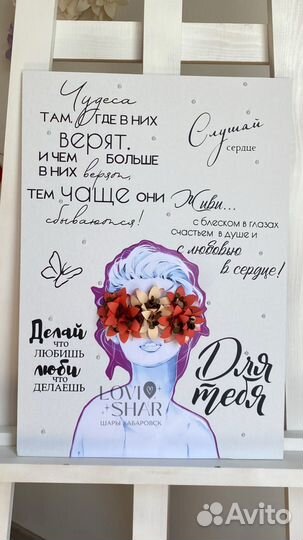 Чудеса
ТАМ, ГДЕ В НИХ
ВЕРЯТ.
И ЧЕМ БОЛЬШЕ
В НИХ верят,
ТЕМ ЧАЩЕ ОНИ
сбываются!
Слушай
сердце
Живи...
с блеском в глазах
счастьем в душе и
с любовью
в сердце!
Делай
что
ЛЮБИШЬ
люби
что
ДЕЛАЕШЬ
Для
тебя
LOVI
SHAR
ШАРЫ ХАБАРОВСК
Avito